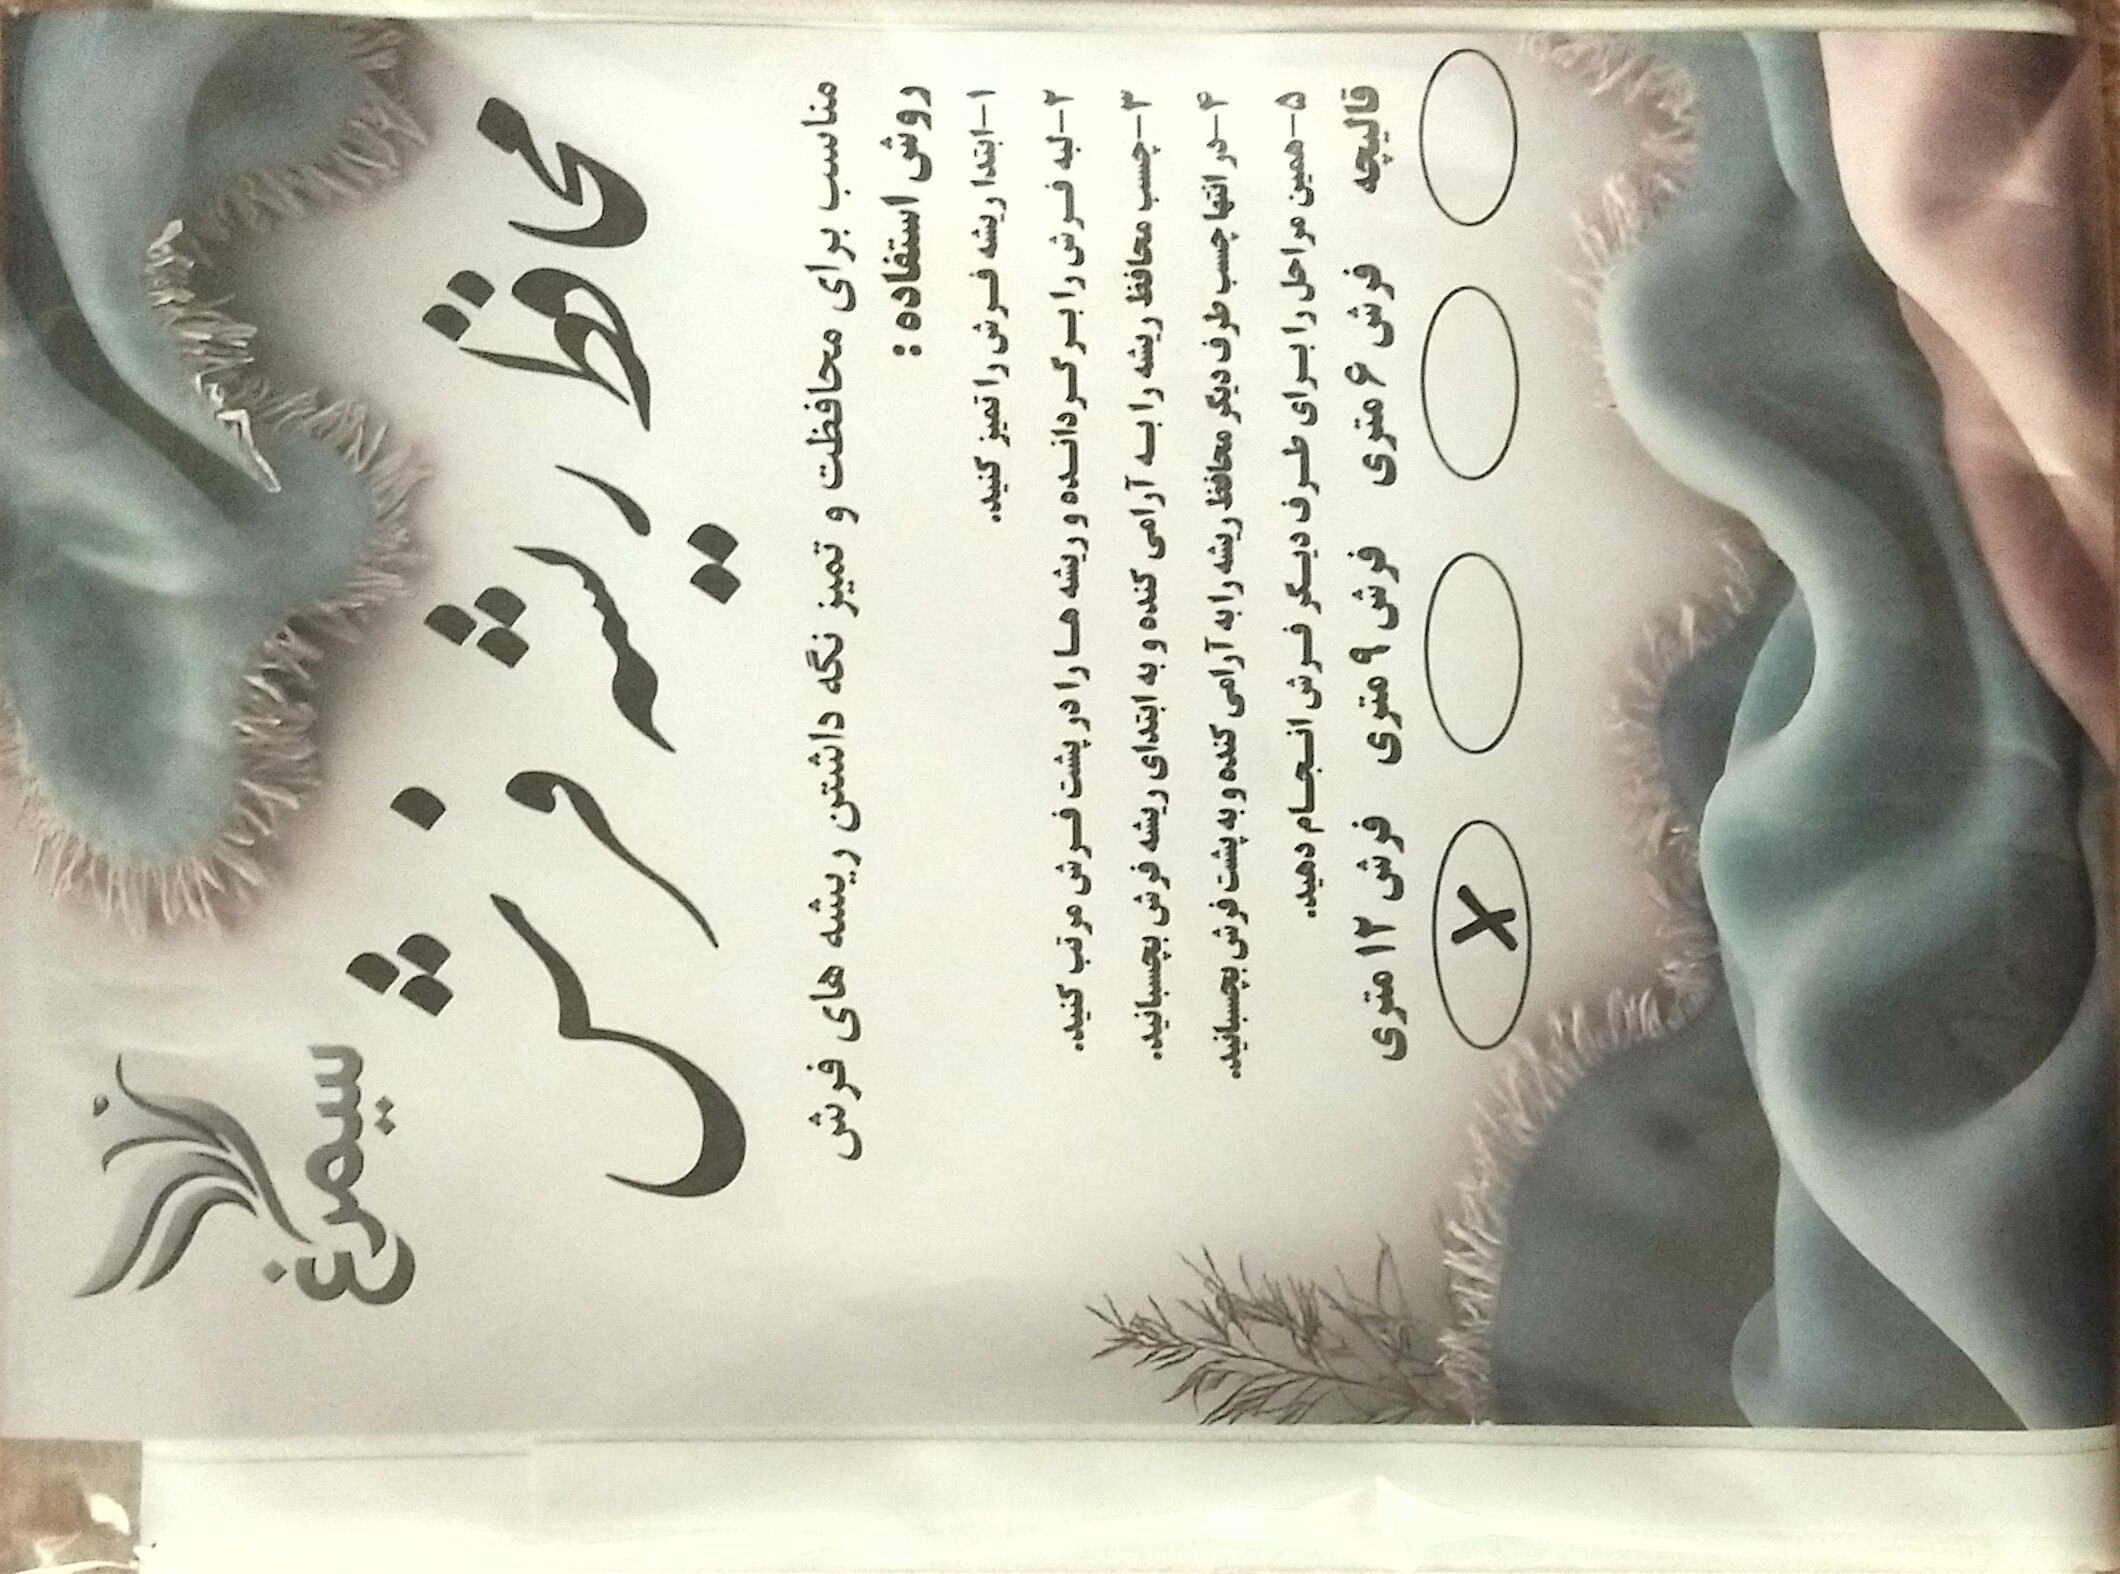 سیمرغ
محافظ ریشه فرش
مناسب برای محافظت و تمیز نگه داشتن ریشه های فرش
روش استفاده :
۱-ابتدا ریشه فرش را تمیز کنید.
۲-لبه فرش را برگردانده و ریشه ها را در پشت فرش مرتب کنید.
۳-چسب محافظ ریشه را به آرامی کنده و به ابتدای ریشه فرش بچسبانید.
۴-در انتها چسب طرف دیگر محافظ ریشه را به آرامی کنده و به پشت فرش بچسبانید.
۵-همین مراحل را برای طرف دیگر فرش انجام دهید.
قالیچه فرش ۶ متری فرش ۹ متری فرش ۱۲ متری
X